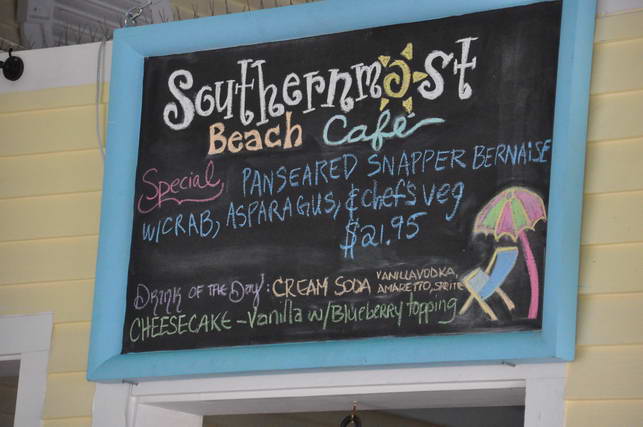 Southernmost
Beach Cafe
Special PANSEARED SNAPPER BERNAISE
W/CRAB, ASPARAGUS, & chef's veg
$21.95
DRINK OF THE DAY: CREAM SODA VANILLA VODKA,
AMARETTO, SPRITE
CHEESECAKE - Vanilla w/Blueberry topping